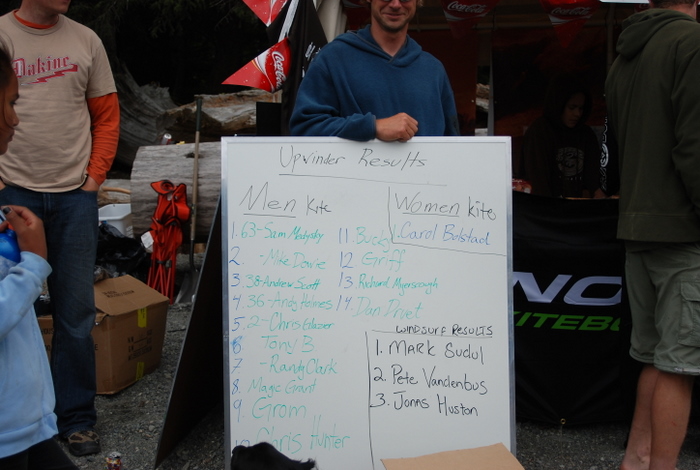 Dakine
Coca-Cola
Coca-Cola
Upwinder Results
Men Kite
1. 63-Sam Medysky
2. -Mike Davie
3. 38-Andrew Scott
4. 36-Andy Holmes
5. 2-Chris Glazier
6 Tony B
7 -Randy Clark
8. Magic Grant
9. Grom
10 Chris Hunter
11. Bucky
12 Griff
13 Richard Myerscough
14. Dan Drvet
Women kite
1. Carol Bolstad
WINDSURF RESULTS
1. MARK Sudul
2. Pete Vandenbus
3. Jonns Huston
ITEBO